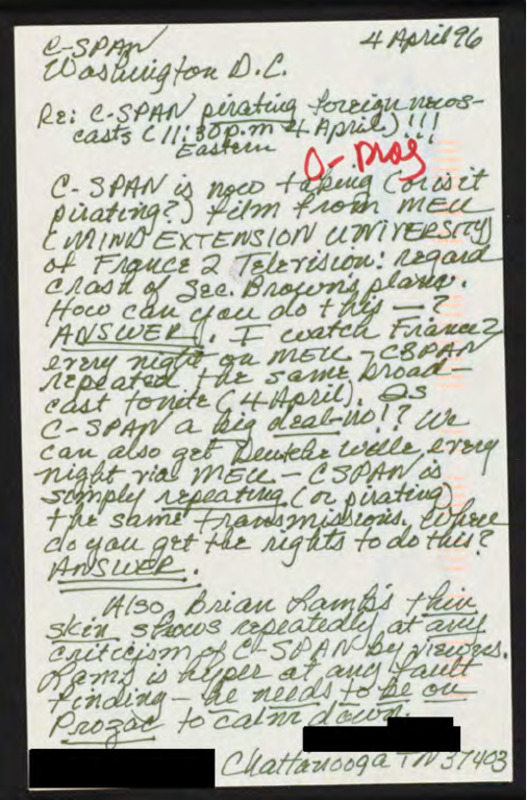 C-SPAN 4 April 96
Washington D.C.
Re: C-SPAN pirating foreign news-
casts (11:30p.m 4 April)!!!
Eastern
O- Prog
C-SPAN is now taking (or is it
pirating?) film from MEU
(MIND EXTENSION UNIVERSITY)
of France 2 Television: regard
crash of Sec. Brown's plane.
How can you do this — ?
ANSWER!. I watch France 2
every night on MEU - CSPAN
repeated the same broad-
cast tonite (4 April). Is
C-SPAN a big deal-no!? We
can also get Deutche Welle every
night via MEU - CSPAN is
simply repeating (or pirating)
the same transmissions. Where
do you get the rights to do this?
ANSWER.
Also, Brian Lamb's thin
skin shows repeatedly at any
criticism of C-SPAN by viewers.
Lamb is hyper at any fault
finding - he needs to be on
Prozac to calm down.
Chattanooga TN 37403